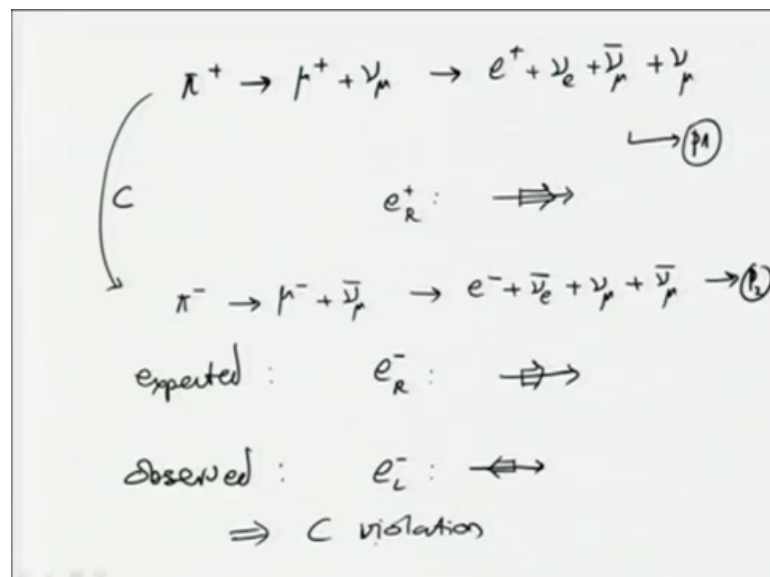 π⁺ → μ⁺ + ν_μ → e⁺ + ν_e + ν̄_μ + ν_μ
→ p1
C
e⁺_R :
π⁻ → μ⁻ + ν̄_μ → e⁻ + ν̄_e + ν_μ + ν̄_μ → p2
expected : e⁻_R :
observed : e⁻_L :
⇒ C violation